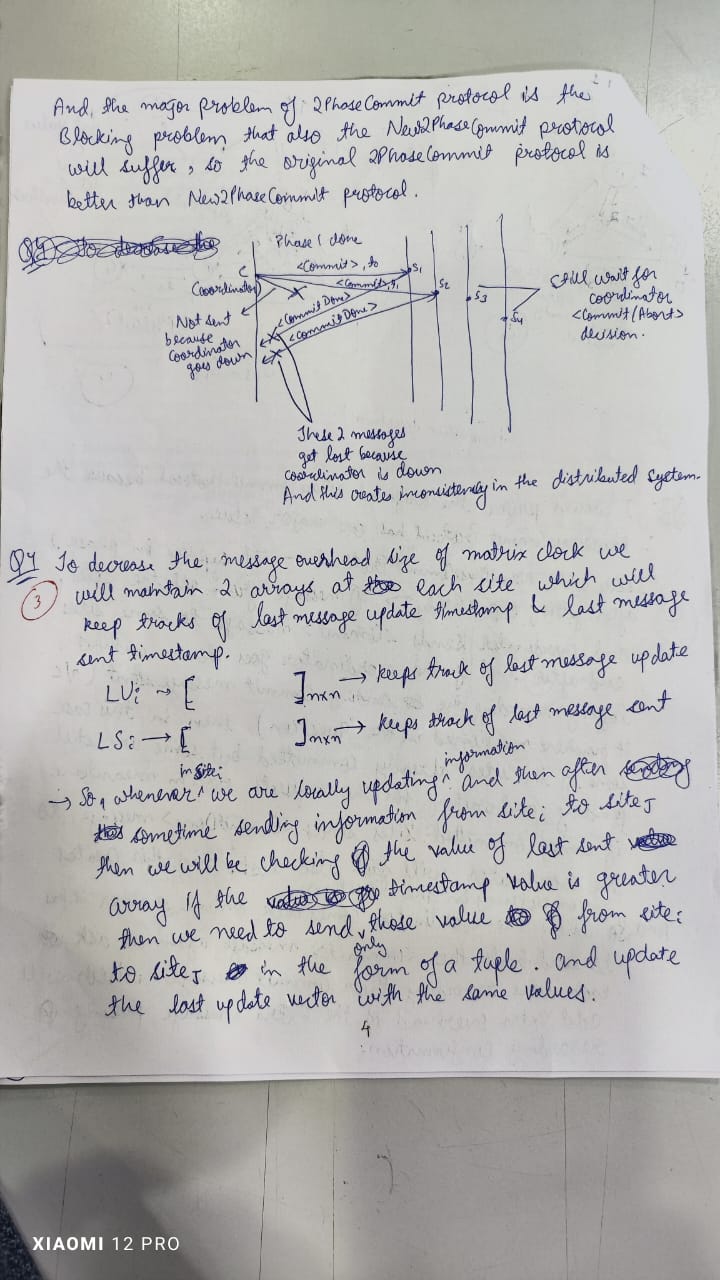 And, the major problem of 2PhaseCommit protocol is the
Blocking problem that also the New2PhaseCommit protocol
will suffer, so the original 2PhaseCommit protocol is
better than New2PhaseCommit protocol.
Phase 1 done
C
(Coordinator)
<Commit>, to
S1
<Commit>,
S2
S3
S4
<Commit Done>
<Commit Done>
Not sent
because
coordinator
goes down
Still wait for
coordinator
<Commit/Abort>
decision.
These 2 messages
get lost because
coordinator is down
And this creates inconsistency in the distributed system.
Q4 To decrease the message overhead size of matrix clock we
3
will maintain 2 arrays at each site which will
keep tracks of last message update timestamp & last message
sent timestamp.
LUi → [ ]nxn → keeps track of last message update
LSi → [ ]nxn → keeps track of last message sent
→ So, whenever in sitei we are locally updating information and then after
sometime sending information from sitei to siteJ
then we will be checking the value of last sent
array if the timestamp value is greater
then we need to send only those value from sitei
to siteJ in the form of a tuple. and update
the last update vector with the same values.
4
XIAOMI 12 PRO